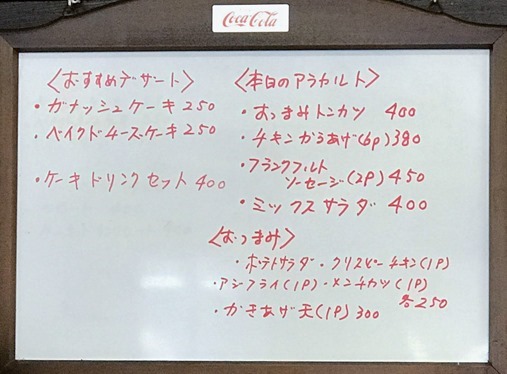 Coca-Cola
〈おすすめデザート〉
・ガナッシュケーキ 250
・ベイクドチーズケーキ 250
・ケーキドリンクセット 400
〈本日のアラカルト〉
・おつまみトンカツ 400
・チキンからあげ(6p) 380
・フランクフルト
ソーセージ(2P) 450
・ミックスサラダ 400
〈おつまみ〉
・ポテトサラダ ・クリスピーチキン(1P)
・アジフライ(1P) ・メンチカツ(1P)
各250
・かきあげ天(1P) 300